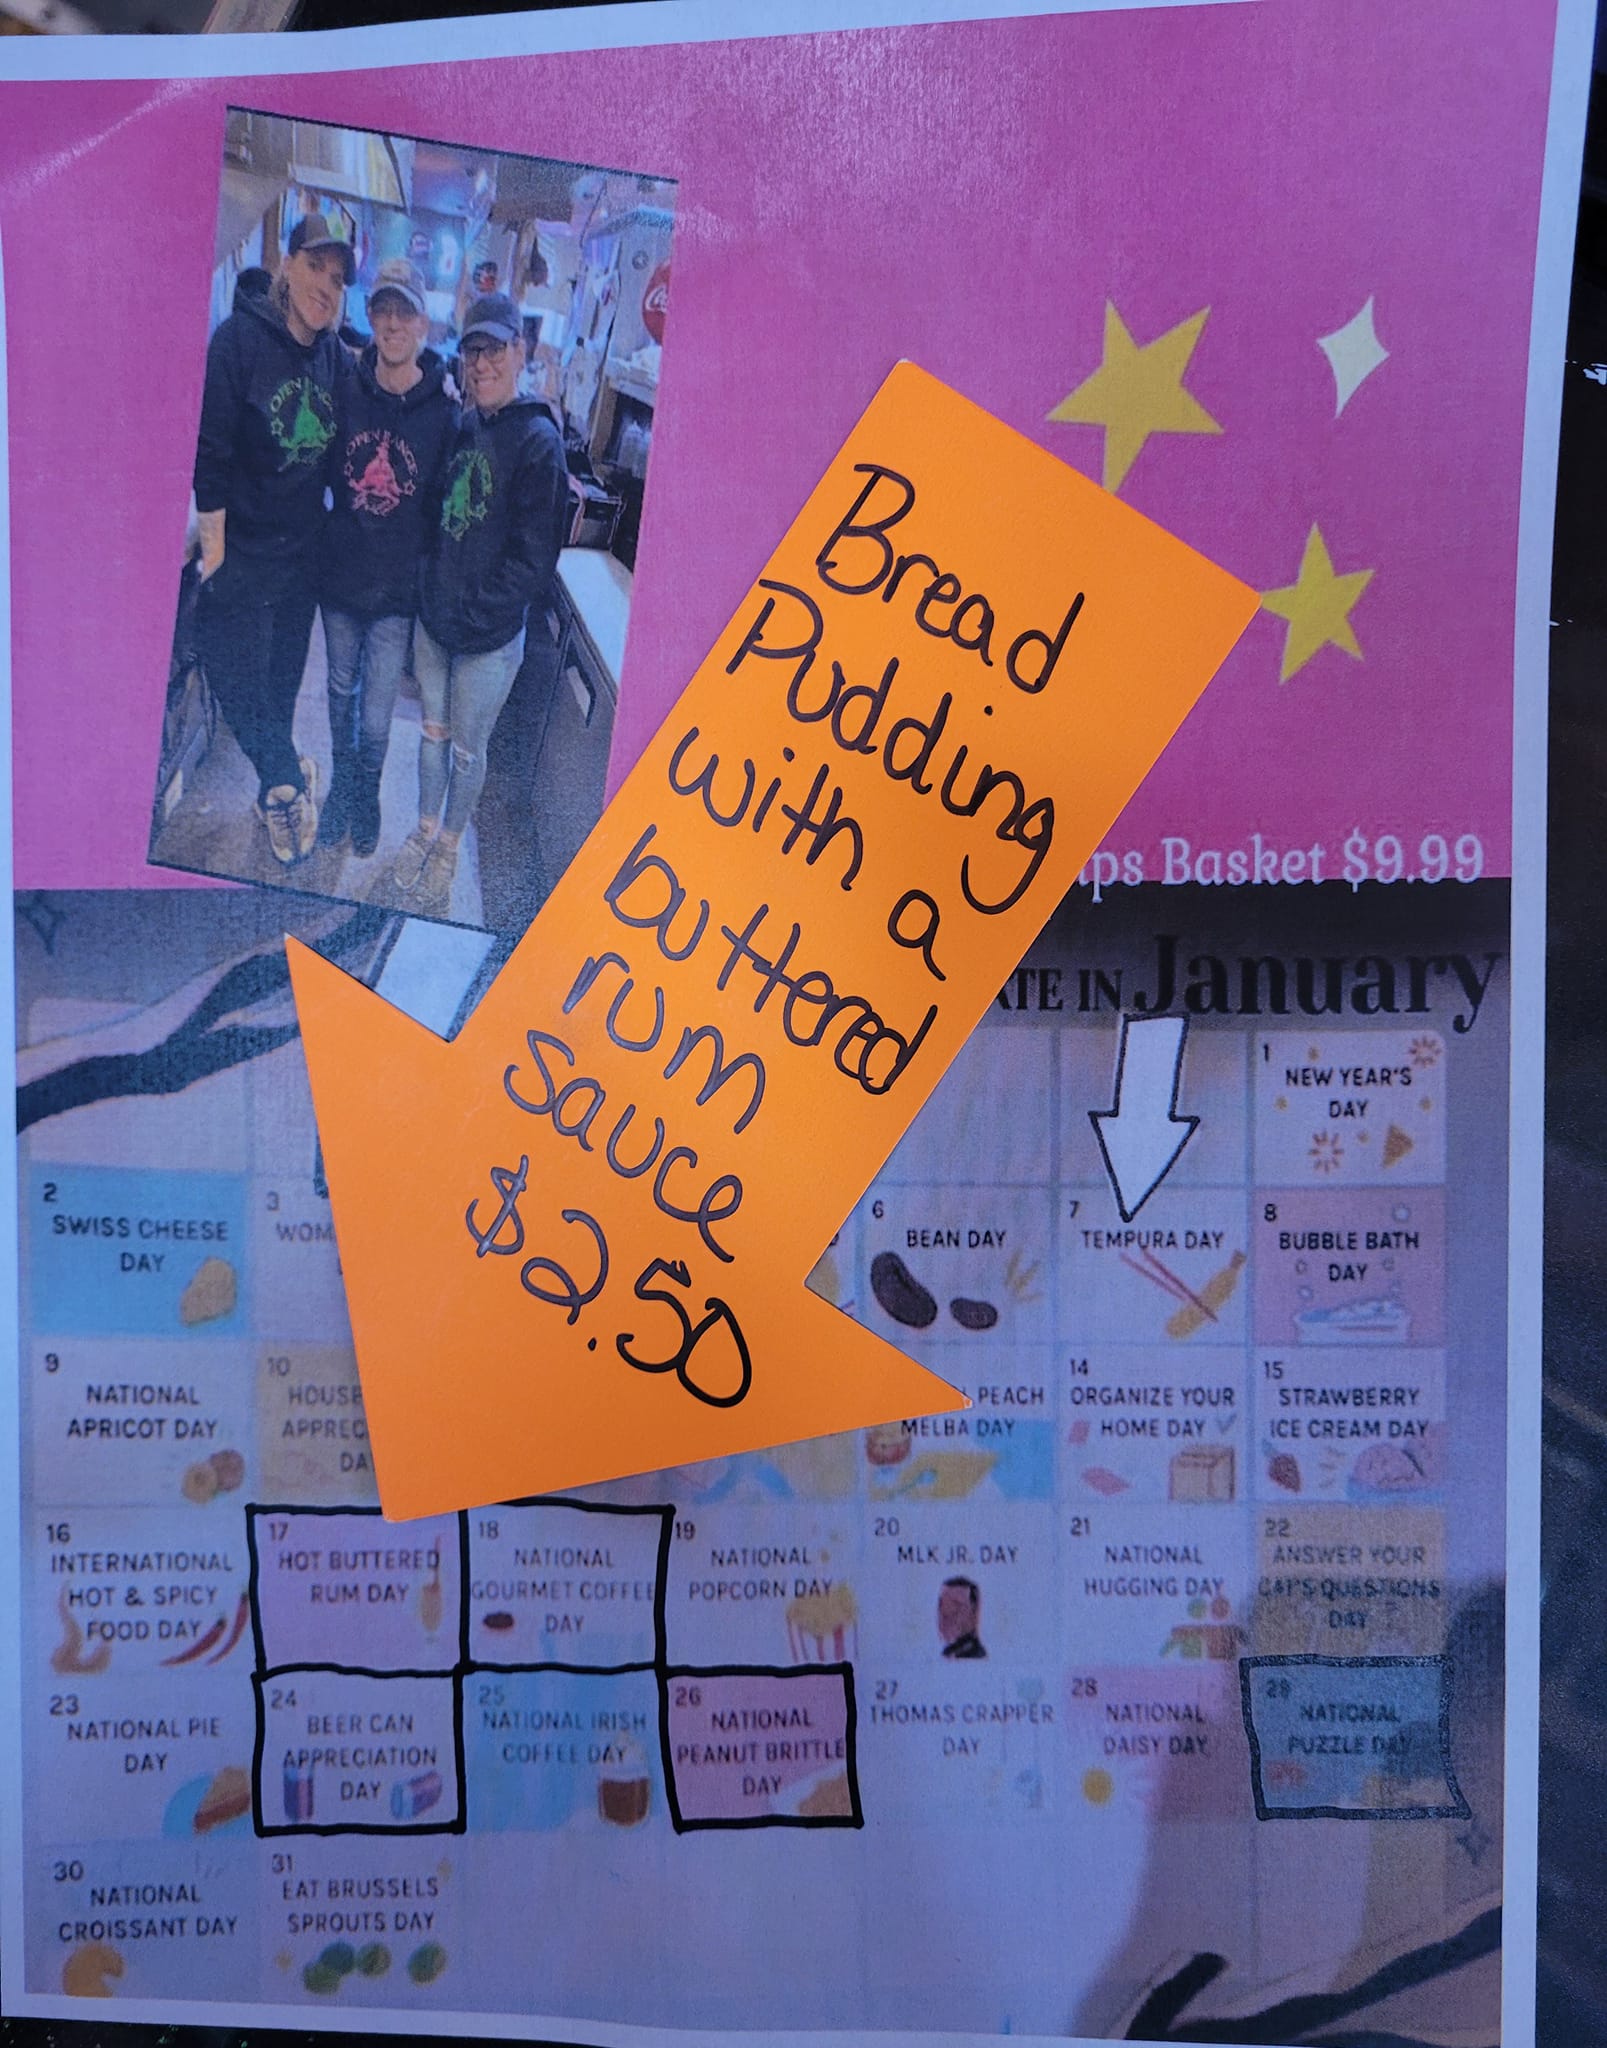 OPEN RANGE
OPEN RANGE
Bread
Pudding
with a
buttered
rum
sauce
$2.50
Basket $9.99
IN January
1
NEW YEAR'S
DAY
2
SWISS CHEESE
DAY
3
6
BEAN DAY
7
TEMPURA DAY
8
BUBBLE BATH
DAY
9
NATIONAL
APRICOT DAY
10
PEACH
MELBA DAY
14
ORGANIZE YOUR
HOME DAY
15
STRAWBERRY
ICE CREAM DAY
16
INTERNATIONAL
HOT & SPICY
FOOD DAY
17
HOT BUTTERED
RUM DAY
18
NATIONAL
GOURMET COFFEE
DAY
19
NATIONAL
POPCORN DAY
20
MLK JR. DAY
21
NATIONAL
HUGGING DAY
22
ANSWER YOUR
CAT'S QUESTIONS
DAY
23
NATIONAL PIE
DAY
24
BEER CAN
APPRECIATION
DAY
25
NATIONAL IRISH
COFFEE DAY
26
NATIONAL
PEANUT BRITTLE
DAY
27
THOMAS CRAPPER
DAY
28
NATIONAL
DAISY DAY
29
NATIONAL
PUZZLE DAY
30
NATIONAL
CROISSANT DAY
31
EAT BRUSSELS
SPROUTS DAY